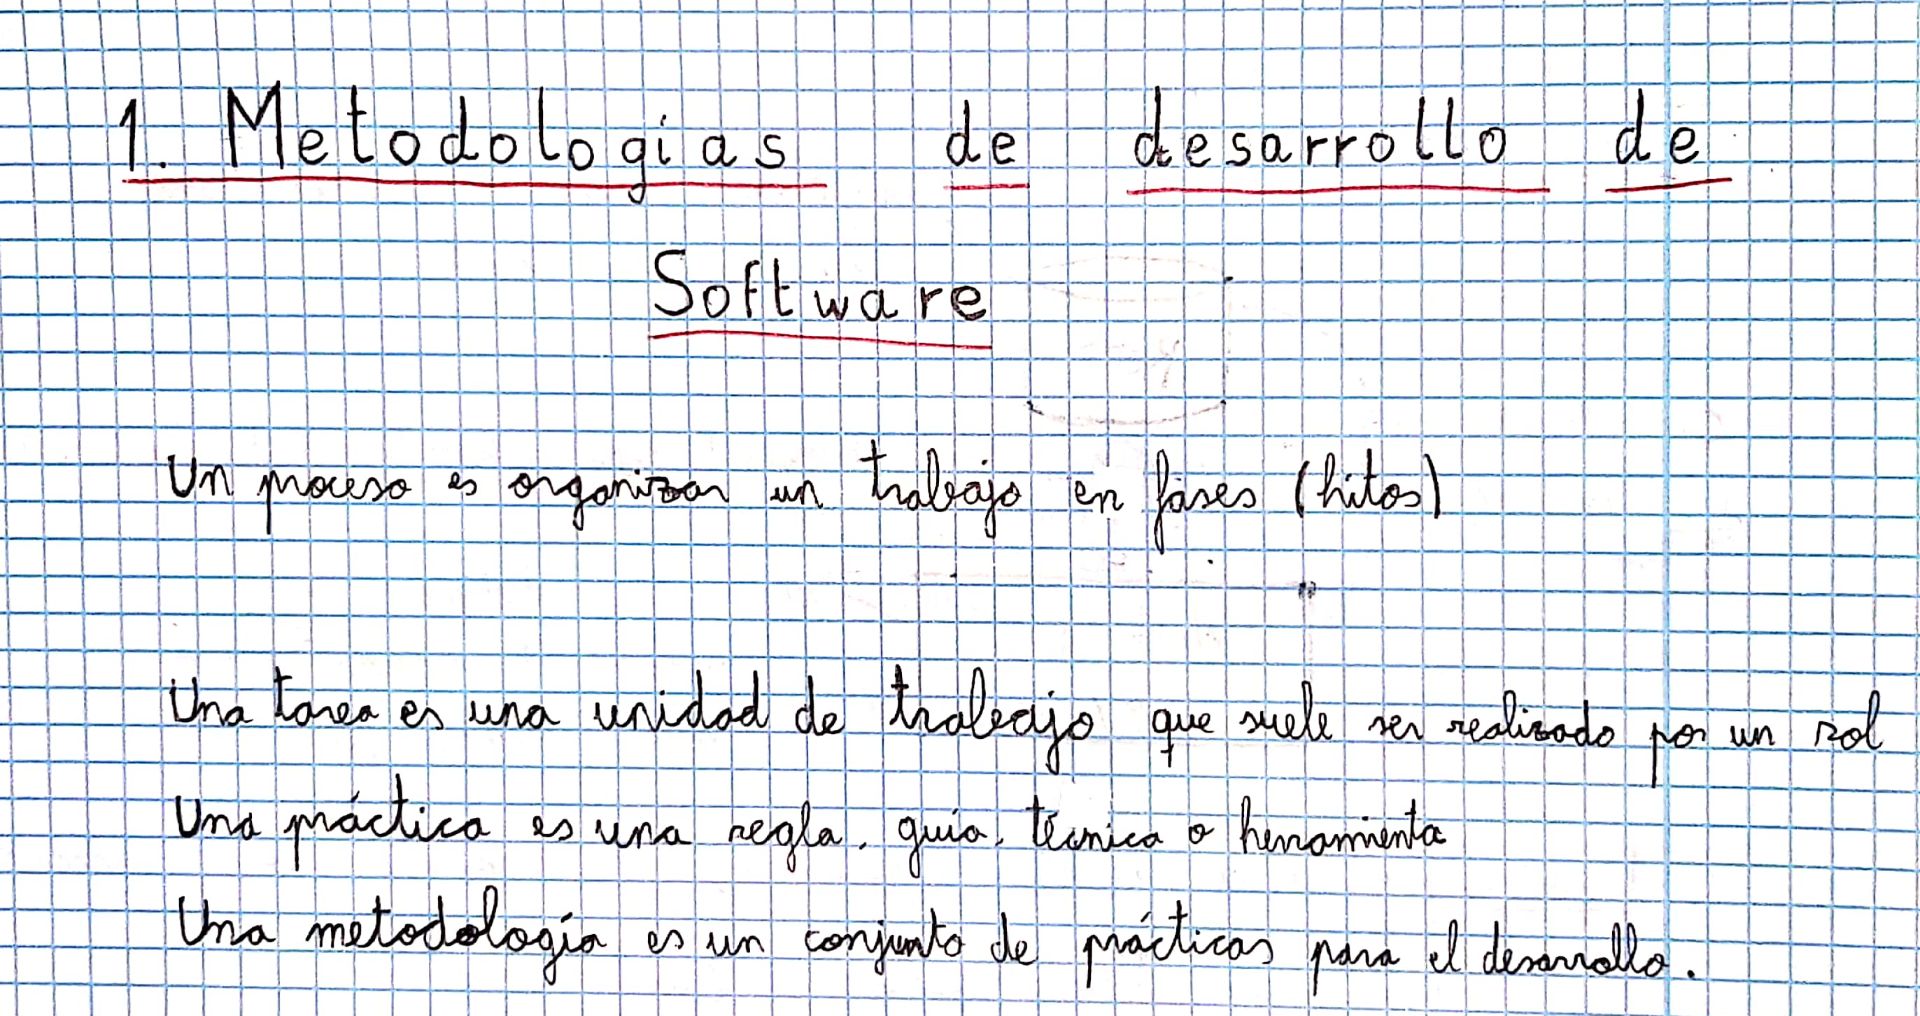 1. Metodologías de desarrollo de
Software
Un proceso es organizar un trabajo en fases (hitos)
Una tarea es una unidad de trabajo que suele ser realizado por un rol
Una práctica es una regla, guía, técnica o herramienta
Una metodología es un conjunto de prácticas para el desarrollo.